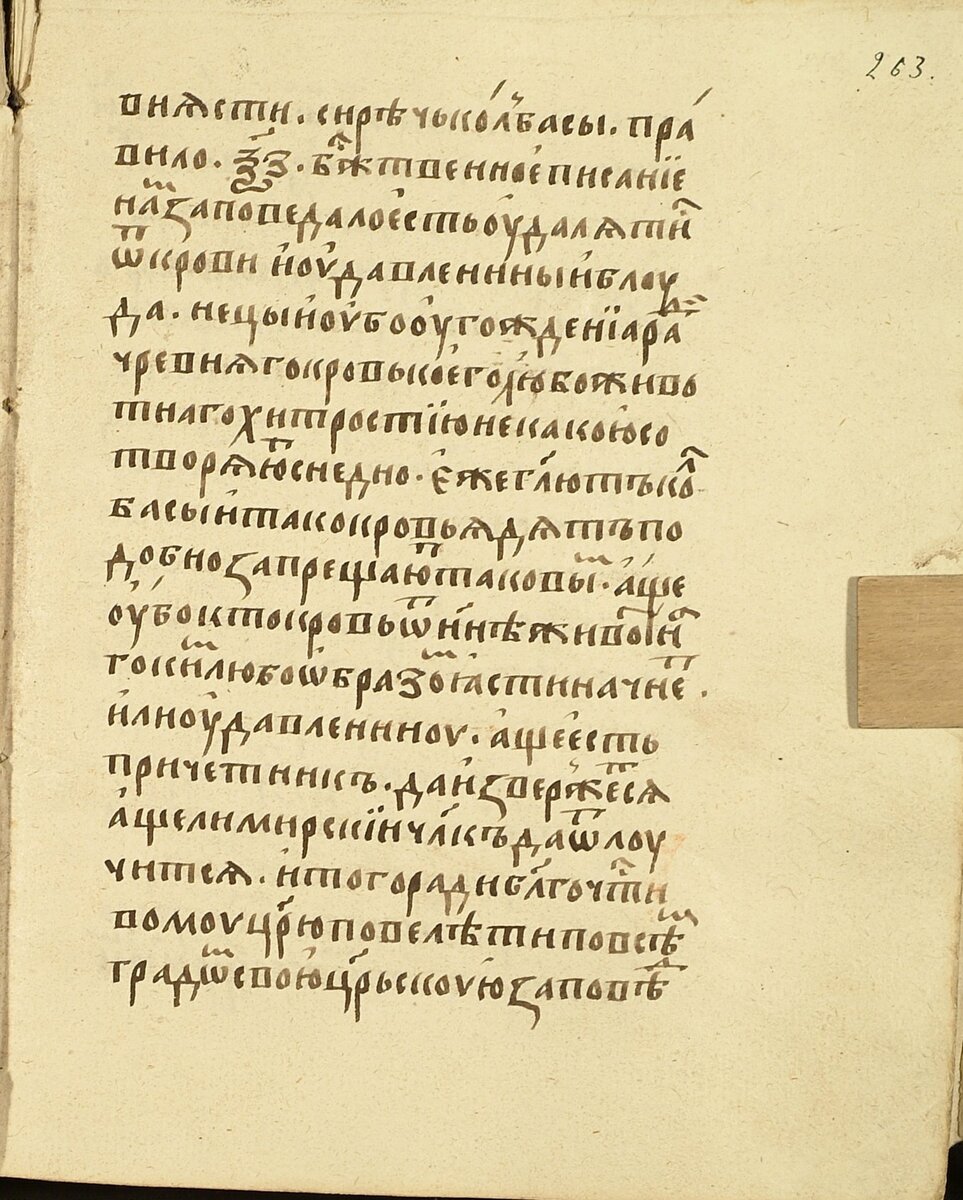 263.
вни ꙗсти . сирѣчь ко́лбасы . пра́
вило . ѯ҃з . бжⷭ҇твенное писанїе
наⷨ заповедало есть оудалятиⷭ
ѿ крови и оудавленины и блоу
да . нецыи оубо оугожденїа раⷣ
чревняго кровь коего любо живо
тнаго хитростїю некакою со
творяюⷮ снедно . еже гл҃ютъ коⷧ
басы и тако кровь ꙗдятъ по
добно запрещаюⷮ таковыⷨ . аще
оубо кто кровь ѿ инѣ живоⷮноⷢ
го киⷨ любо ѡбразоⷨ ꙗсти начнеⷮ .
или оудавленину . аще есть
причетникъ . да извержеⷮсѧ
аще ли мирскїи чл҃къ да ѿлоу
читсѧ . и того ради бл҃гочтⷭ҇и
вомоу цр҃ю повелѣти по всѣⷨ
градѡⷨ свою цр҃ьскоую заповѣⷣ